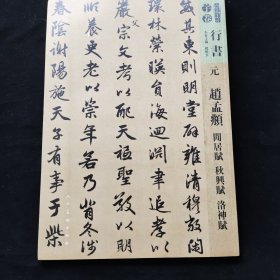 行書
元 趙孟頫
閒居賦 秋興賦 洛神賦
其東則明堂辟雍清穆敞閑
環林縈暎員海迴淵聿追孝以
嚴父宗文考以配天祗聖敬以明
順養更老以崇年若乃背冬涉
春陰謝陽施天子有事于柴